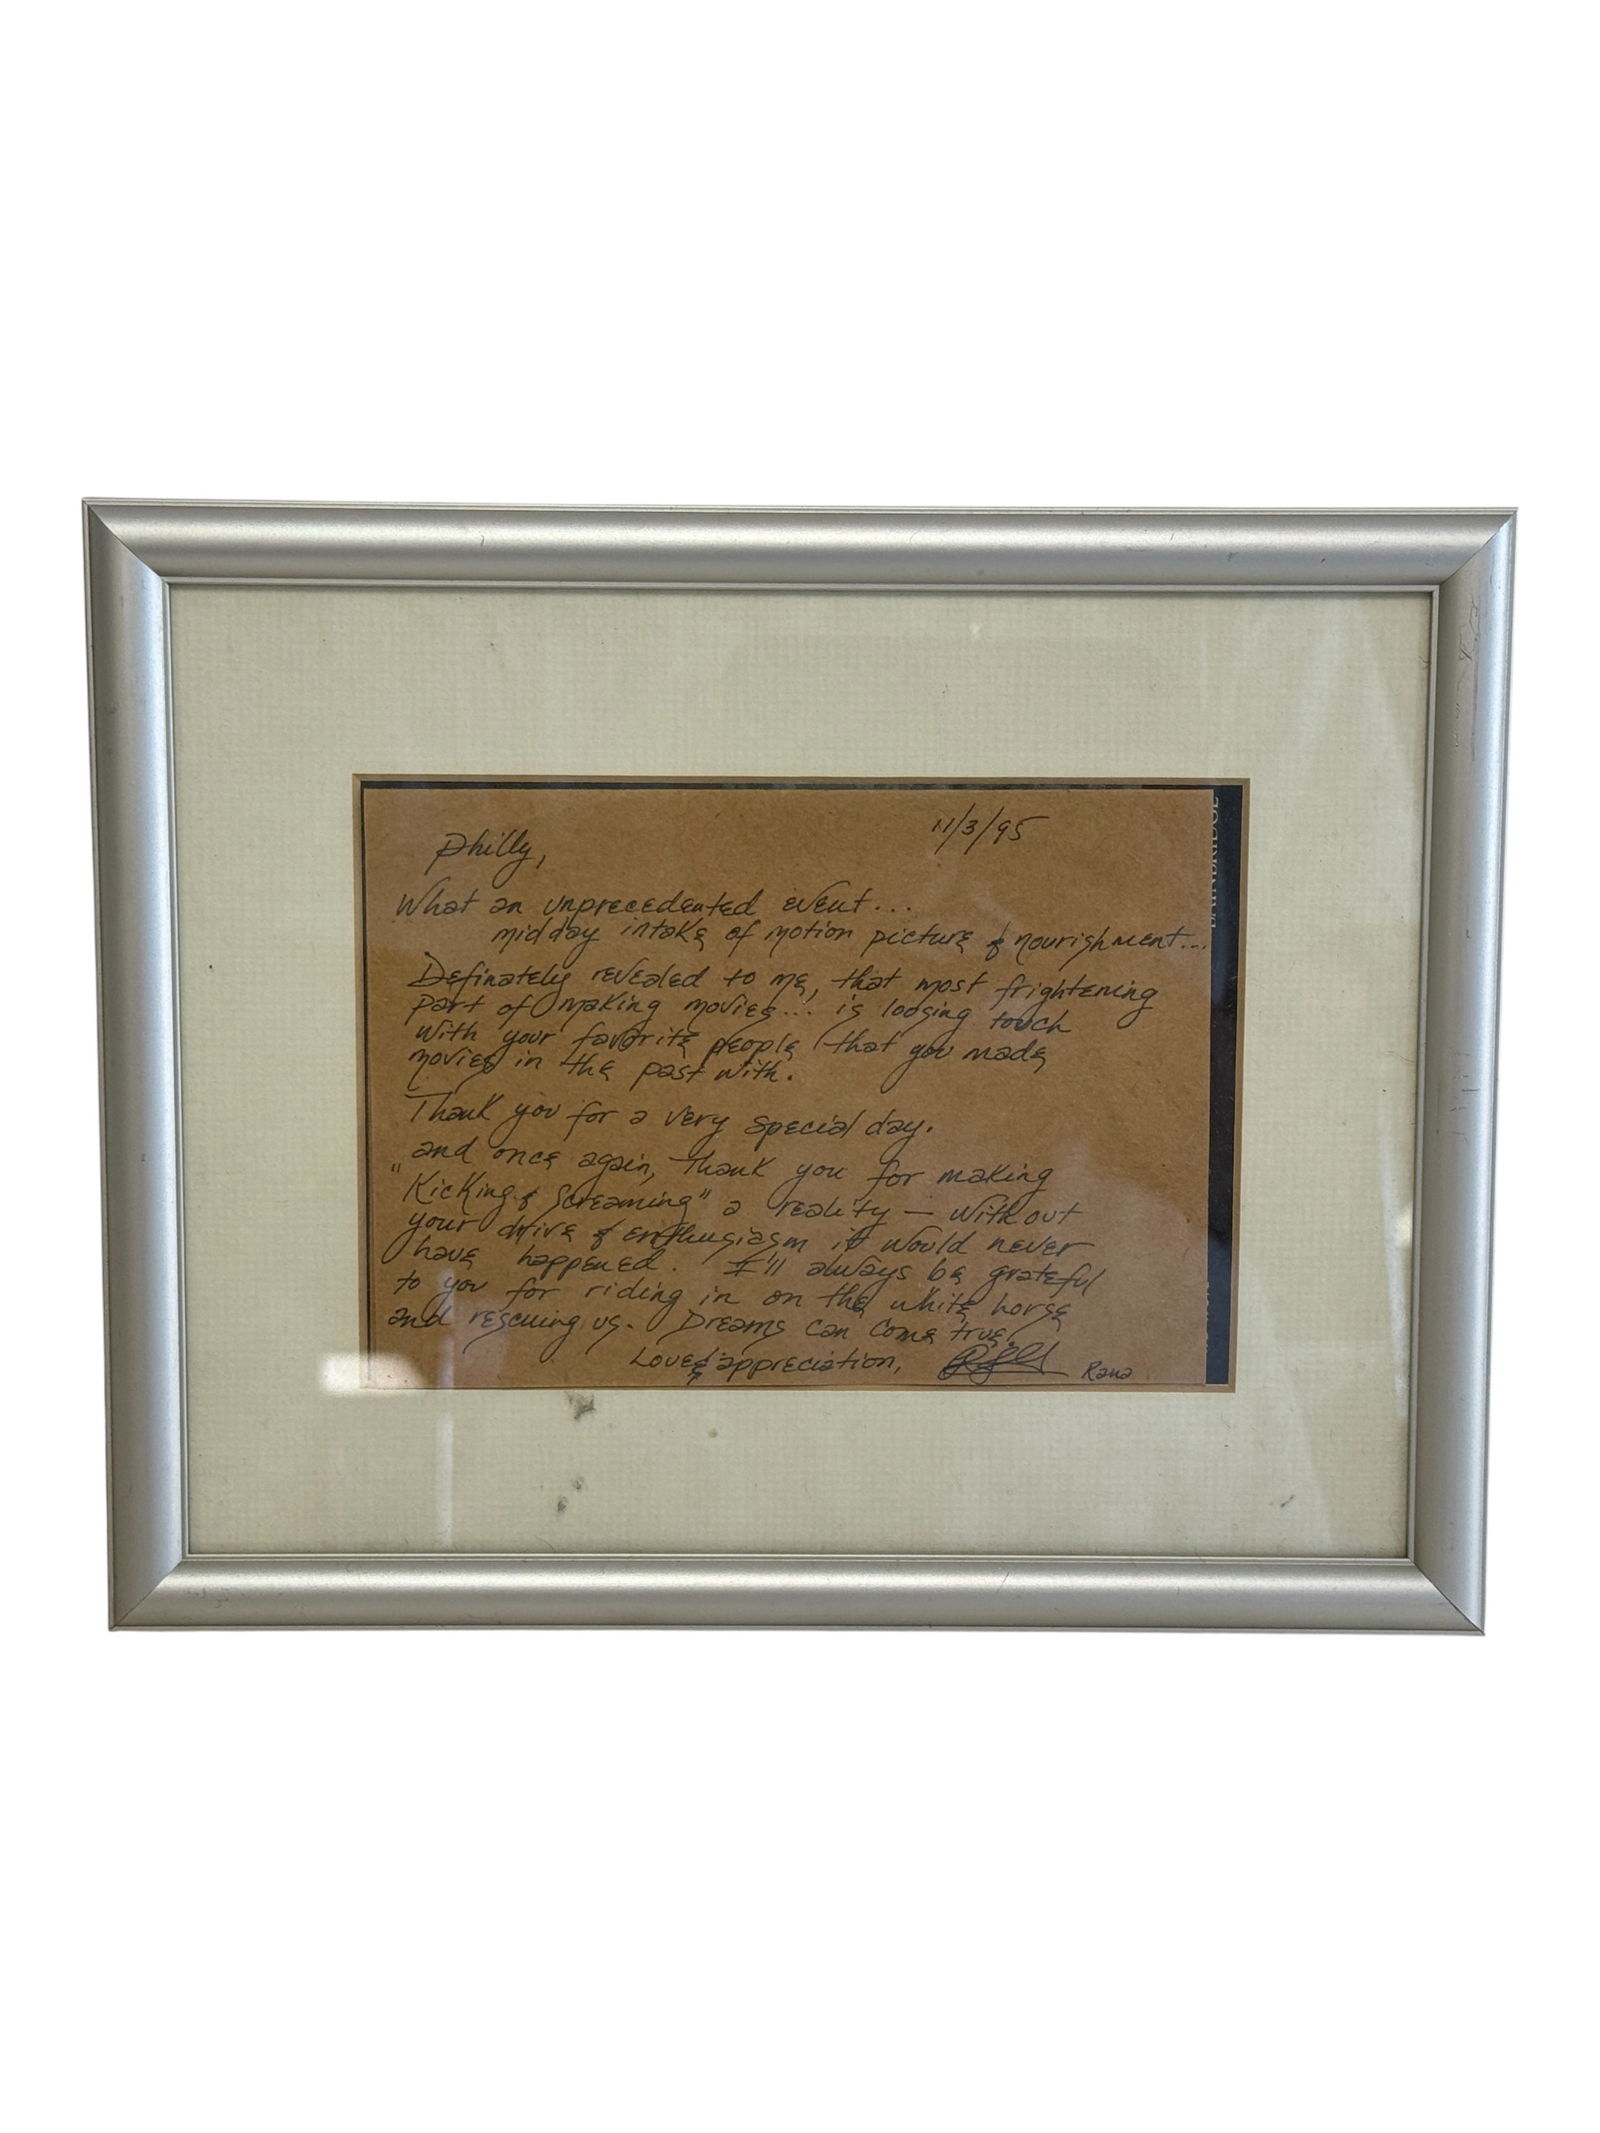 11/3/95
Philly,
What an unprecedented event...
midday intake of motion picture & nourishment...
Definately revealed to me, that most frightening
part of making movies... is loosing touch
with your favorite people that you made
movies in the past with.
Thank you for a very special day.
and once again, thank you for making
"Kicking & Screaming" a reality — without
your drive & enthusiasm it would never
have happened. I'll always be grateful
to you for riding in on the white horse
and rescuing us. Dreams can come true.
Love & appreciation,
Rana